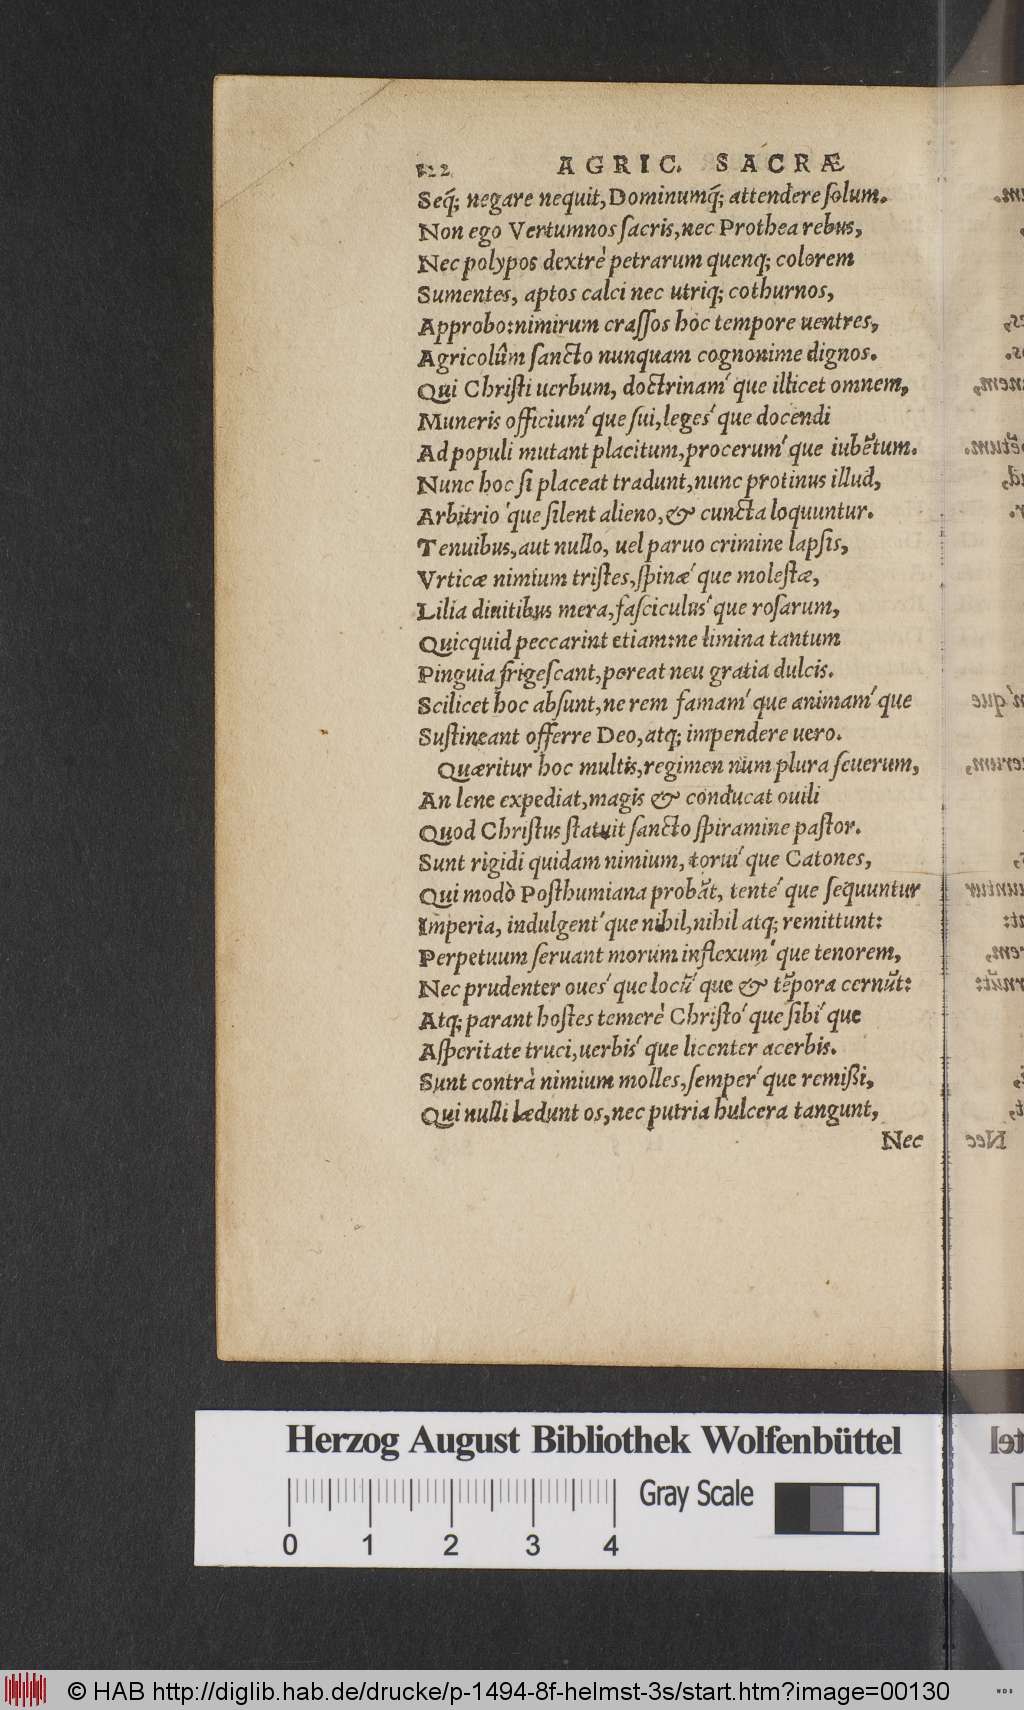 122 AGRIC. SACRÆ
Seq́; negare nequit, Dominumq́; attendere ſolum.
Non ego Vertumnos ſacris, nec Prothea rebus,
Nec polypos dextrè petrarum quenq; colorem
Sumentes, aptos calci nec utriq; cothurnos,
Approbo: nimirum craſſos hoc tempore uentres,
Agricolûm ſancto nunquam cognomine dignos.
Qui Chriſti uerbum, doctrinam´ que illicet omnem,
Muneris officium´ que ſui, leges´ que docendi
Ad populi mutant placitum, procerum´ que iubẽtum.
Nunc hoc ſi placeat tradunt, nunc protinus illud,
Arbitrio ´que ſilent alieno, & cuncta loquuntur.
Tenuibus, aut nullo, uel paruo crimine lapſis,
Vrticæ nimium triſtes, ſpinæ´ que moleſtæ,
Lilia diuitibus mera, faſciculus´ que roſarum,
Quicquid peccarint etiam: ne limina tantum
Pinguia frigeſcant, pereat neu gratia dulcis.
Scilicet hoc abſunt, ne rem famam´ que animam´ que
Suſtineant offerre Deo, atq; impendere uero.
Quæritur hoc multis, regimen num plura ſeuerum,
An lene expediat, magis & conducat ouili
Quod Chriſtus ſtatuit ſancto ſpiramine paſtor.
Sunt rigidi quidam nimium, torui´ que Catones,
Qui modò Poſthumiana probãt, tente´ que ſequuntur
Imperia, indulgent´ que nihil, nihil atq; remittunt:
Perpetuum ſeruant morum inflexum´ que tenorem,
Nec prudenter oues´ que locũ´ que & tẽpora cernũt:
Atq; parant hoſtes temerè Chriſto´ que ſibi´ que
Aſperitate truci, uerbis´ que licenter acerbis.
Sunt contrà nimium molles, ſemper´ que remißi,
Qui nulli lædunt os, nec putria hulcera tangunt,
Nec
Herzog August Bibliothek Wolfenbüttel
Gray Scale
0 1 2 3 4
© HAB http://diglib.hab.de/drucke/p-1494-8f-helmst-3s/start.htm?image=00130